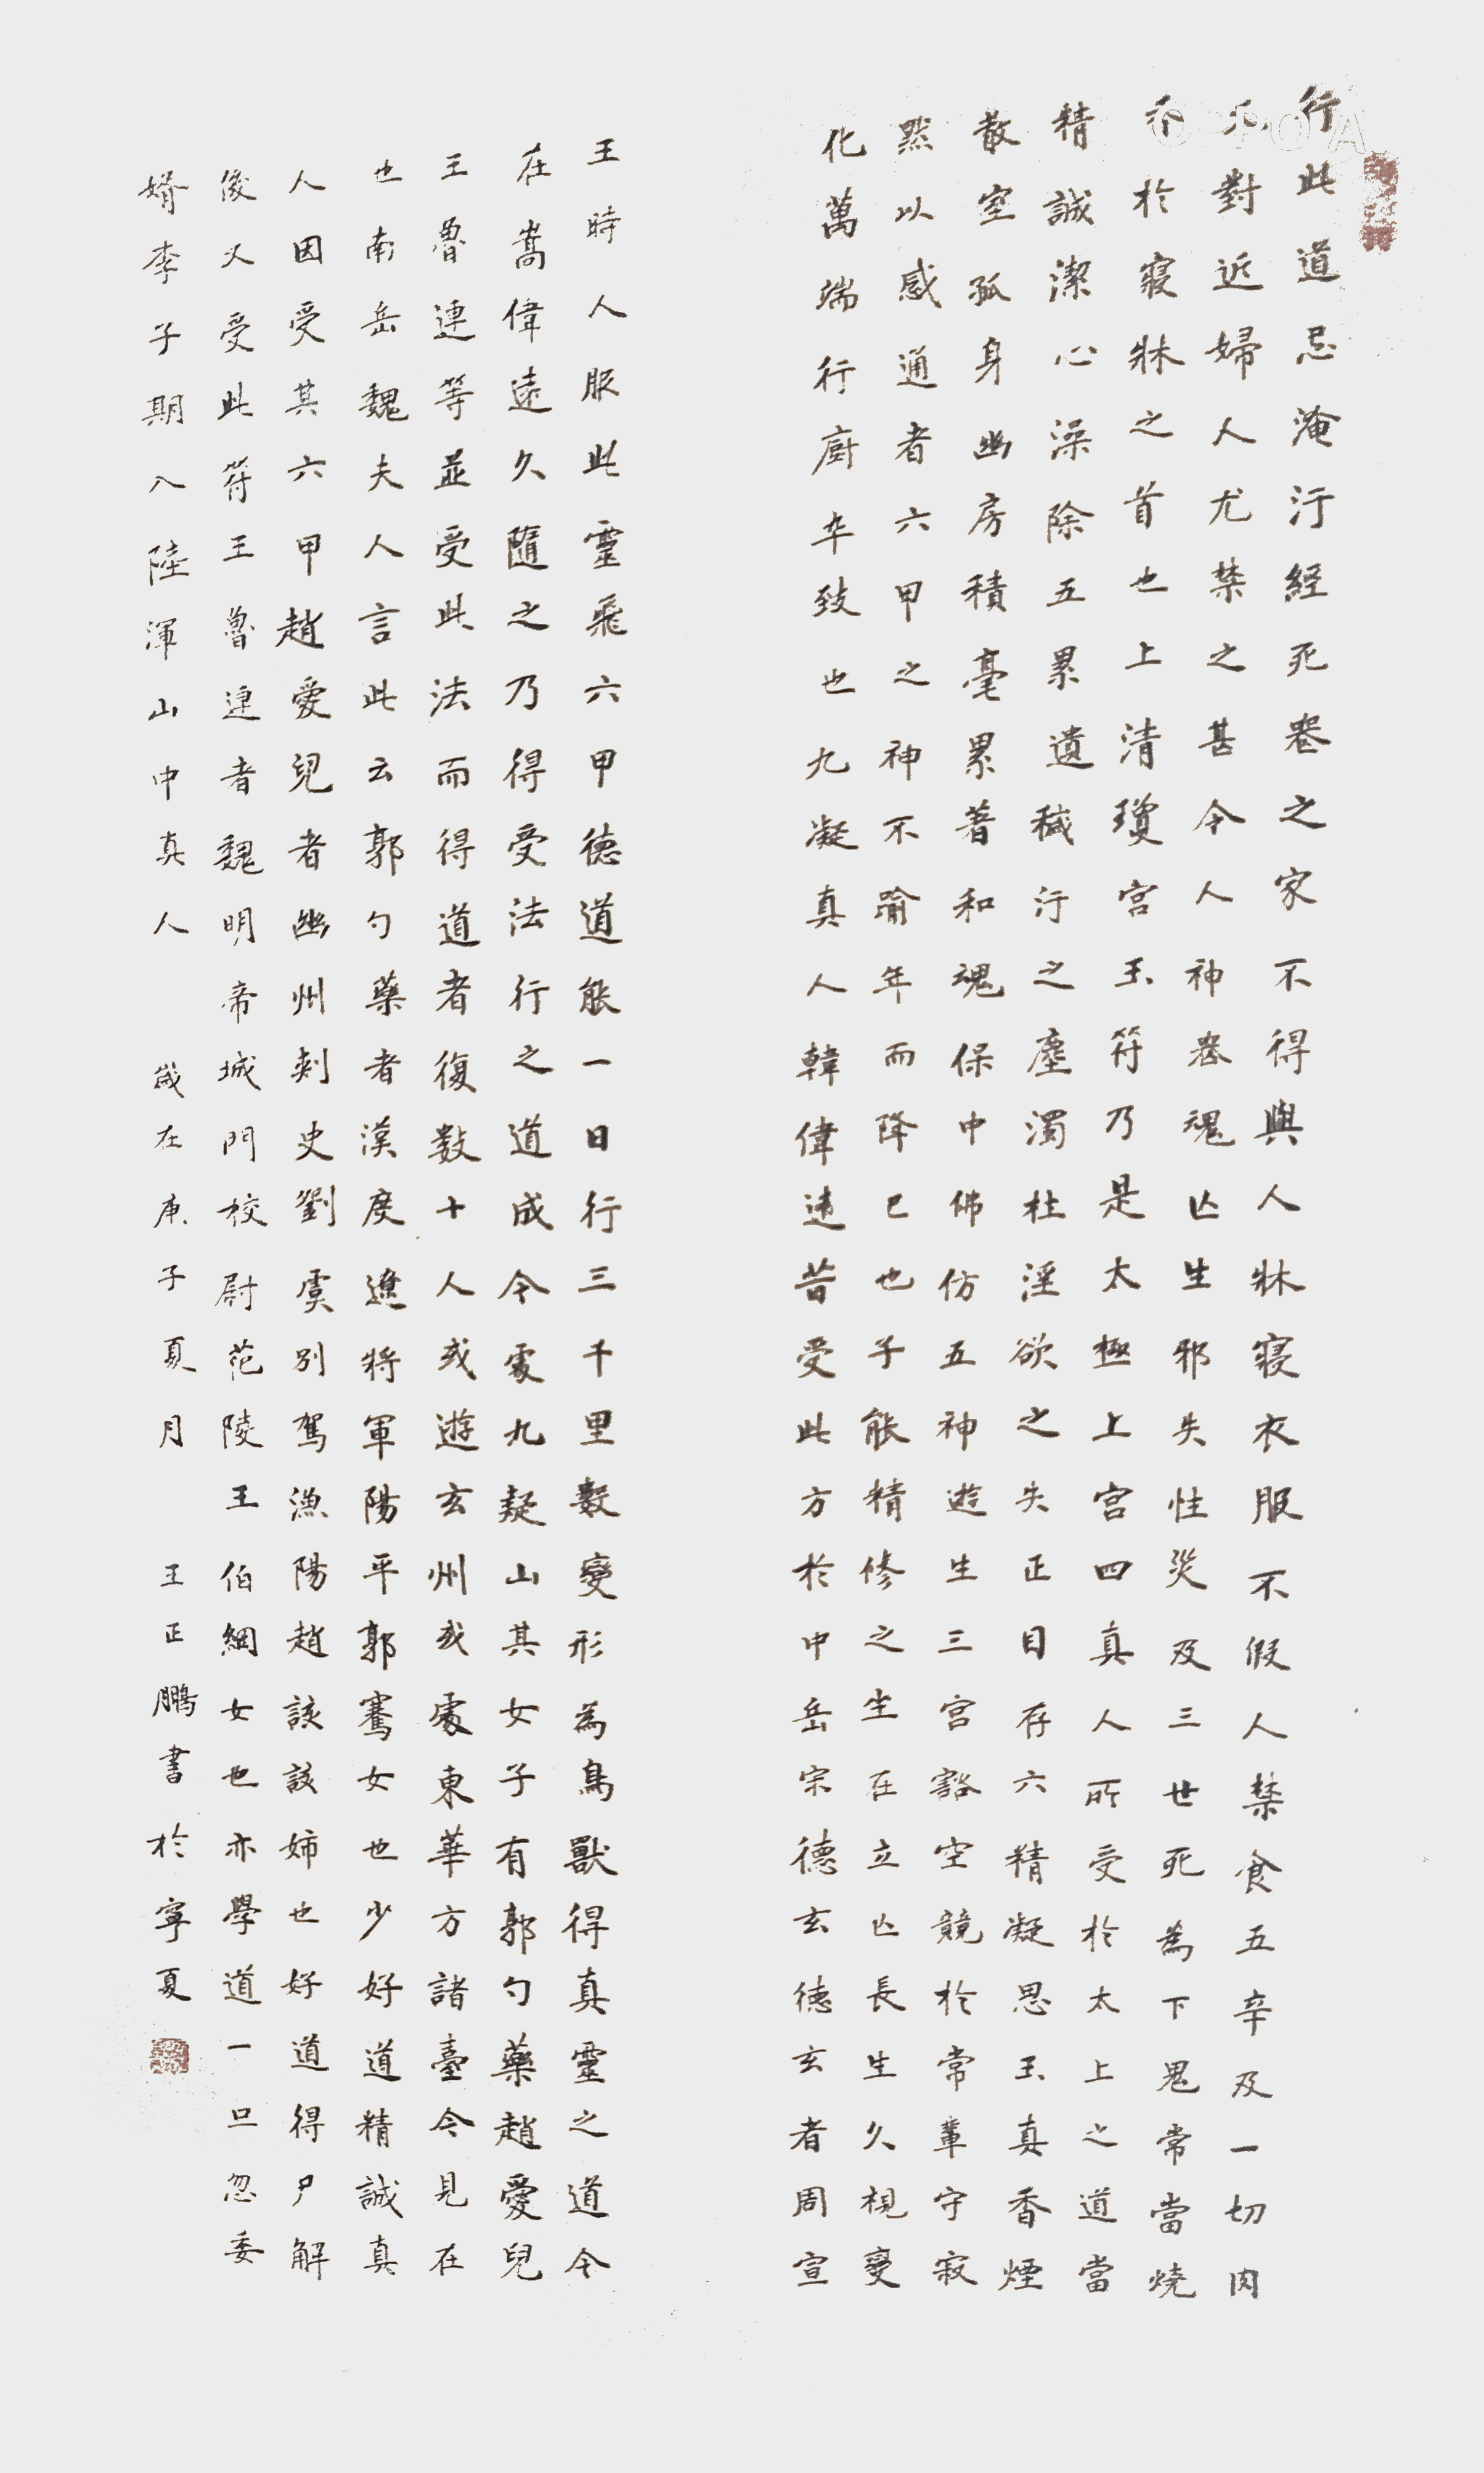 行此道忌淹汙經死喪之家不得與人牀寢衣服不假人禁食五辛及一切肉
又對近婦人尤禁之甚令人神喪魂亡生邪失性災及三世死為下鬼常當燒
香於寢牀之首也上清瓊宮玉符乃是太極上宮四真人所受於太上之道當
精誠潔心澡除五累遺穢汙之塵濁杜淫欲之失正目存六精凝思玉真香煙
散室孤身幽房積毫累著和魂保中佛仿五神遊生三宮豁空競於常輩守寂
默以感通者六甲之神不踰年而降已也子能精修之坐在立亡長生久視變
化萬端行廚卒致也九凝真人韓偉遠昔受此方於中岳宗德玄德玄者周宣
王時人服此靈飛六甲德道能一日行三千里數變形為鳥獸得真靈之道今
在嵩偉遠久隨之乃得受法行之道成今處九疑山其女子有郭勺藥趙愛兒
王魯連等並受此法而得道者復數十人或遊玄州或處東華方諸臺今見在
也南岳魏夫人言此云郭勺藥者漢度遼將軍陽平郭騫女也少好道精誠真
人因受其六甲趙愛兒者幽州刺史劉虞別駕漁陽趙該該姉也好道得尸解
後又受此符王魯連者魏明帝城門校尉范陵王伯綱女也亦學道一旦忽委
婿李子期入陸渾山中真人 歲在庚子夏月 王正鵬書於寧夏